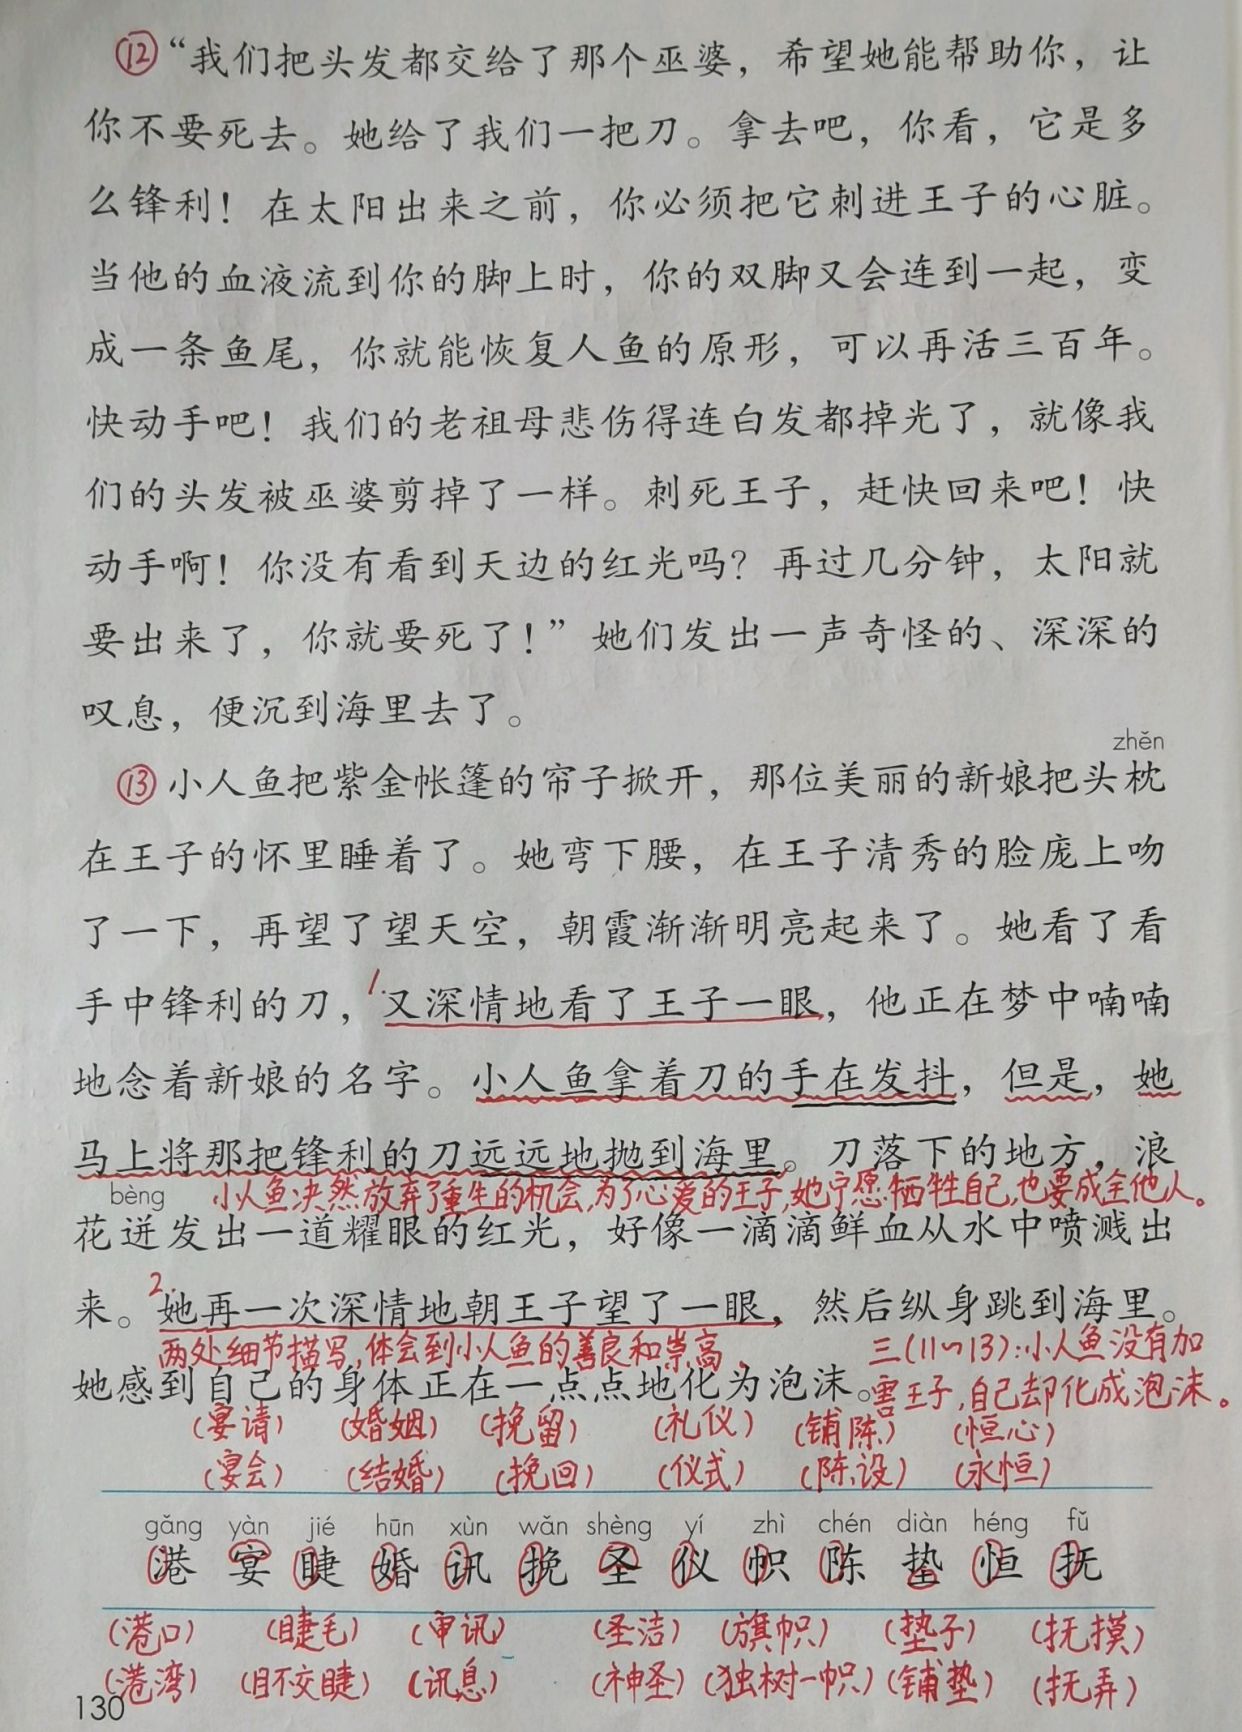 ⑫“我们把头发都交给了那个巫婆，希望她能帮助你，让
你不要死去。她给了我们一把刀。拿去吧，你看，它是多
么锋利！在太阳出来之前，你必须把它刺进王子的心脏。
当他的血液流到你的脚上时，你的双脚又会连到一起，变
成一条鱼尾，你就能恢复人鱼的原形，可以再活三百年。
快动手吧！我们的老祖母悲伤得连白发都掉光了，就像我
们的头发被巫婆剪掉了一样。刺死王子，赶快回来吧！快
动手啊！你没有看到天边的红光吗？再过几分钟，太阳就
要出来了，你就要死了！”她们发出一声奇怪的、深深的
叹息，便沉到海里去了。
zhěn
⑬小人鱼把紫金帐篷的帘子掀开，那位美丽的新娘把头枕
在王子的怀里睡着了。她弯下腰，在王子清秀的脸庞上吻
了一下，再望了望天空，朝霞渐渐明亮起来了。她看了看
手中锋利的刀，1.又深情地看了王子一眼，他正在梦中喃喃
地念着新娘的名字。小人鱼拿着刀的手在发抖，但是，她
马上将那把锋利的刀远远地抛到海里。刀落下的地方，浪
bèng 小人鱼决然放弃了重生的机会，为了心爱的王子，她宁愿牺牲自己，也要成全他人。
花迸发出一道耀眼的红光，好像一滴滴鲜血从水中喷溅出
来。2.她再一次深情地朝王子望了一眼，然后纵身跳到海里。
两处细节描写，体会到小人鱼的善良和崇高。 三(11~13):小人鱼没有加
她感到自己的身体正在一点点地化为泡沫。害王子，自己却化成泡沫。
(宴请) (婚姻) (挽留) (礼仪) (铺陈) (恒心)
(宴会) (结婚) (挽回) (仪式) (陈设) (永恒)
gǎng yàn jié hūn xùn wǎn shèng yí zhì chén diàn héng fǔ
港 宴 睫 婚 讯 挽 圣 仪 帜 陈 垫 恒 抚
(港口) (睫毛) (审讯) (圣洁) (旗帜) (垫子) (抚摸)
(港湾) (目不交睫) (讯息) (神圣) (独树一帜) (铺垫) (抚弄)
130